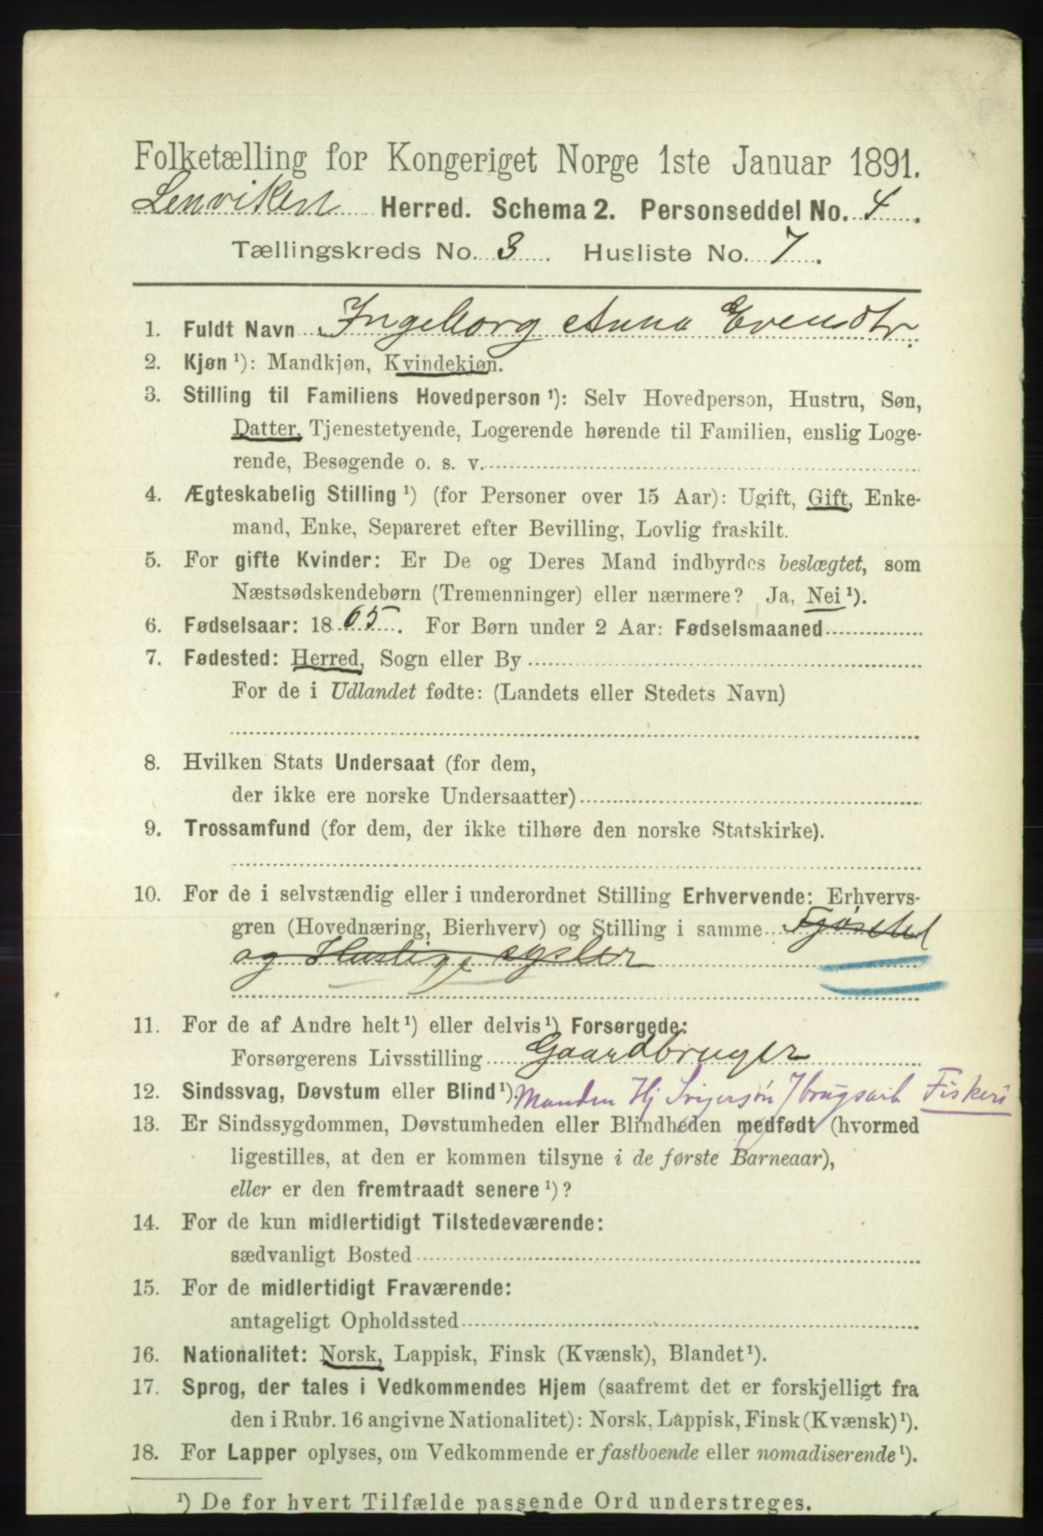 Folketælling for Kongeriget Norge 1ste Januar 1891.
Lenviken Herred. Schema 2. Personseddel No. 4.
Tællingskreds No. 3. Husliste No. 7.
1. Fuldt Navn Ingeborg Anna Evensdtr.
2. Kjøn ¹): Mandkjøn, Kvindekjøn.
3. Stilling til Familiens Hovedperson ¹): Selv Hovedperson, Hustru, Søn,
Datter, Tjenestetyende, Logerende hørende til Familien, enslig Loge-
rende, Besøgende o. s. v.
4. Ægteskabelig Stilling ¹) (for Personer over 15 Aar): Ugift, Gift, Enke-
mand, Enke, Separeret efter Bevilling, Lovlig fraskilt.
5. For gifte Kvinder: Er De og Deres Mand indbyrdes beslægtet, som
Næstsødskendebørn (Tremenninger) eller nærmere? Ja, Nei ¹).
6. Fødselsaar: 1865. For Børn under 2 Aar: Fødselsmaaned
7. Fødested: Herred, Sogn eller By
For de i Udlandet fødte: (Landets eller Stedets Navn)
8. Hvilken Stats Undersaat (for dem,
der ikke ere norske Undersaatter)
9. Trossamfund (for dem, der ikke tilhøre den norske Statskirke).
10. For de i selvstændig eller i underordnet Stilling Erhvervende: Erhvervs-
gren (Hovednæring, Bierhverv) og Stilling i samme Fjøsstel
og Huslige sysler
11. For de af Andre helt ¹) eller delvis ¹) Forsørgede:
Forsørgerens Livsstilling Gaardbruger
12. Sindssvag, Døvstum eller Blind ¹). Manden Hj Svigersøn Jbrugsarb Fiskeri
13. Er Sindssygdommen, Døvstumheden eller Blindheden medfødt (hvormed
ligestilles, at den er kommen tilsyne i de første Barneaar),
eller er den fremtraadt senere ¹)?
14. For de kun midlertidigt Tilstedeværende:
sædvanligt Bosted
15. For de midlertidigt Fraværende:
antageligt Opholdssted
16. Nationalitet: Norsk, Lappisk, Finsk (Kvænsk), Blandet ¹).
17. Sprog, der tales i Vedkommendes Hjem (saafremt det er forskjelligt fra
den i Rubr. 16 angivne Nationalitet): Norsk, Lappisk, Finsk (Kvænsk) ¹).
18. For Lapper oplyses, om Vedkommende er fastboende eller nomadiserende ¹).
¹) De for hvert Tilfælde passende Ord understreges.